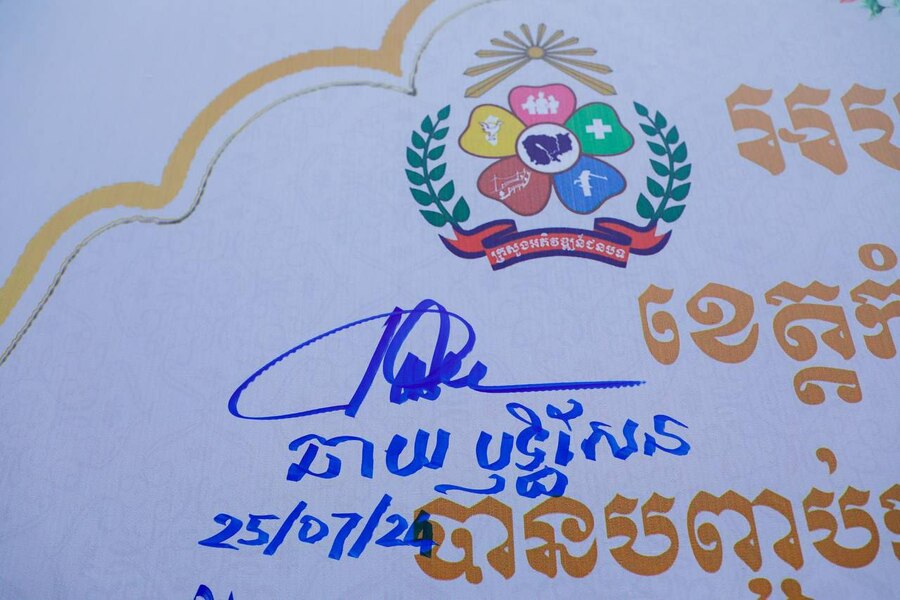 ក្រសួងអភិវឌ្ឍន៍ជនបទ
ខេត្តកំ
ឆាយ ឫទ្ធិសែន
25/07/24
បានបញ្ចប់